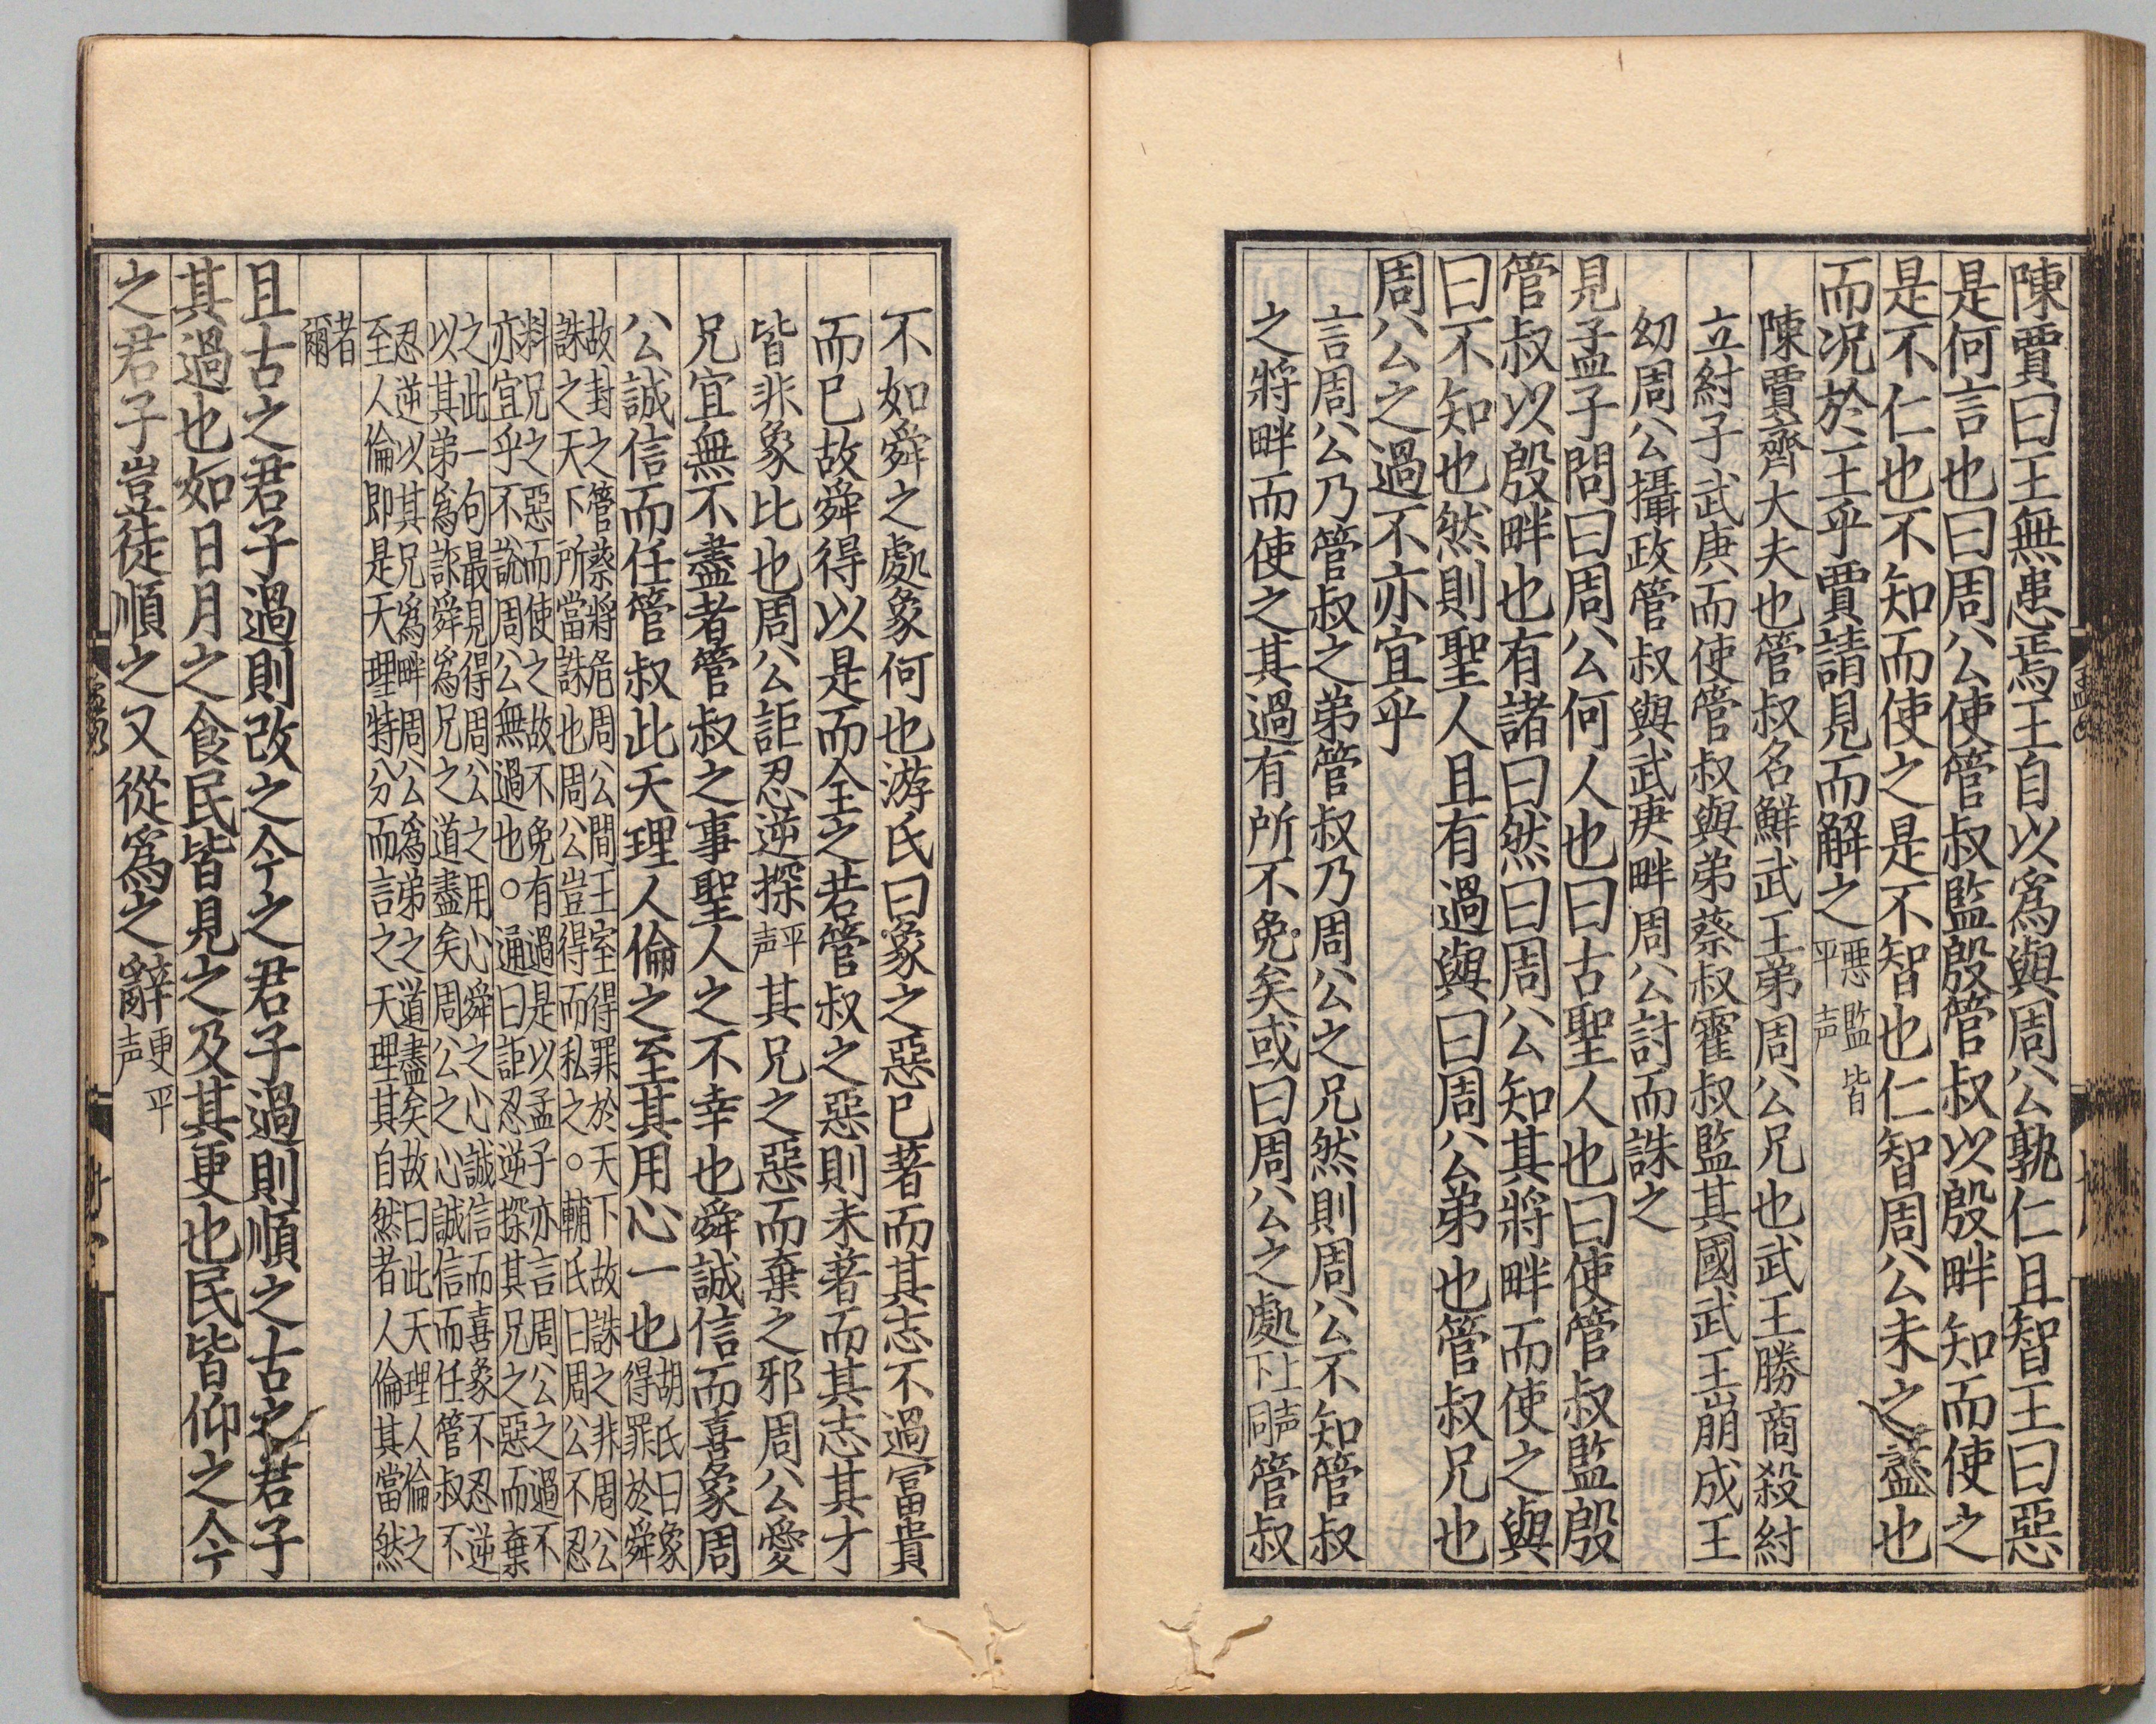 陳賈曰王無患焉王自以爲與周公孰仁且智王曰惡
是何言也曰周公使管叔監殷管叔以殷畔知而使之
是不仁也不知而使之是不智也仁智周公未之盡也
而况於王乎賈請見而解之
惡監皆
平声
陳賈齊大夫也管叔名鮮武王弟周公兄也武王勝商殺紂
立紂子武庚而使管叔與弟蔡叔霍叔監其國武王崩成王
幼周公攝政管叔與武庚畔周公討而誅之
見孟子問曰周公何人也曰古聖人也曰使管叔監殷
管叔以殷畔也有諸曰然曰周公知其將畔而使之與
曰不知也然則聖人且有過與曰周公弟也管叔兄也
周公之過不亦宜乎
言周公乃管叔之弟管叔乃周公之兄然則周公不知管叔
之將畔而使之其過有所不免矣或曰周公之處
上声
下同
管叔
不如舜之處象何也游氏曰象之惡已著而其志不過富貴
而已故舜得以是而全之若管叔之惡則未著而其志其才
皆非象比也周公詎忍逆探
平
声
其兄之惡而棄之邪周公愛
兄宜無不盡者管叔之事聖人之不幸也舜誠信而喜象周
公誠信而任管叔此天理人倫之至其用心一也
胡氏曰象
得罪於舜
故封之管蔡將危周公間王室得罪於天下故誅之非周公
誅之天下所當誅也周公豈得而私之○輔氏曰周公不忍
料兄之惡而使之故不免有過是以孟子亦言周公之過不
亦宜乎不說周公無過也○通曰詎忍逆探其兄之惡而棄
之此一句最見得周公之用心舜之心誠信而喜象不忍逆
以其弟爲誅舜爲兄之道盡矣周公之心誠信而任管叔不
忍逆以其兄爲畔周公爲弟之道盡矣故曰此天理人倫之
至人倫即是天理特分而言之天理其自然者人倫其當然
者
爾
且古之君子過則改之今之君子過則順之古之君子
其過也如日月之食民皆見之及其更也民皆仰之今
之君子豈徒順之又從爲之辭
更平
声